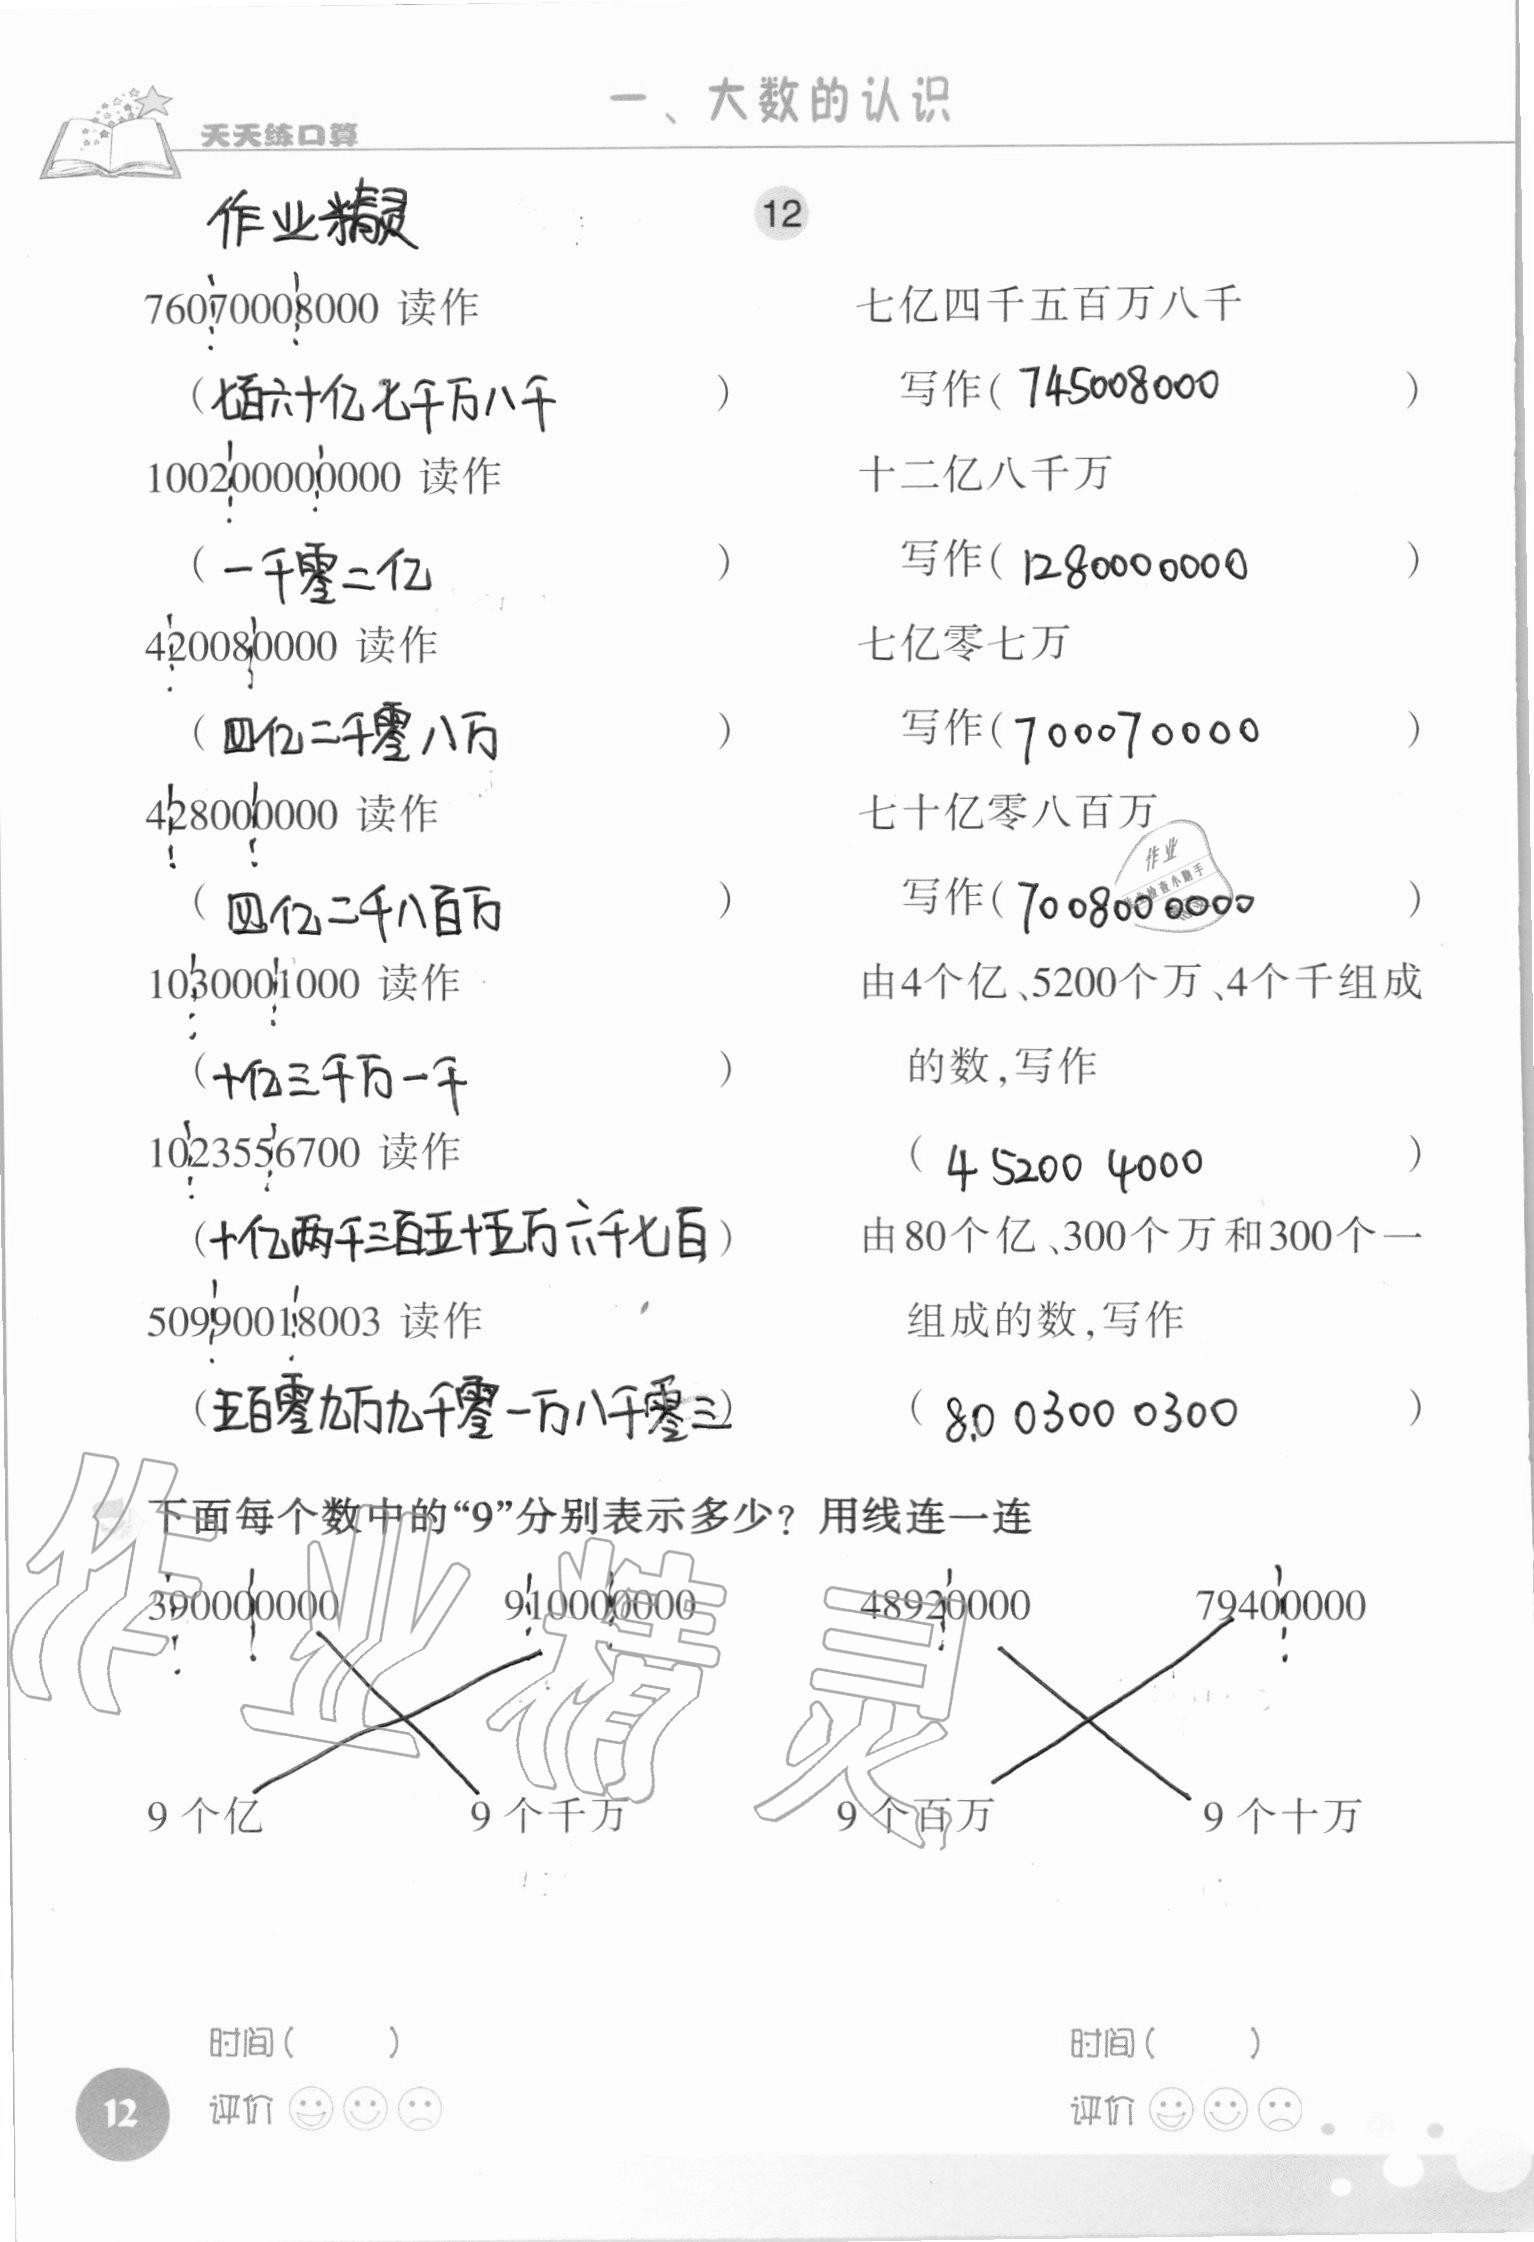 一、大数的认识
天天练口算
作业精灵
12
76070008000 读作
(七百六十亿七千万八千)
100200000000 读作
(一千零二亿)
420080000 读作
(四亿二千零八万)
428000000 读作
(四亿二千八百万)
1030001000 读作
(十亿三千万一千)
1023556700 读作
(十亿两千三百五十五万六千七百)
50990018003 读作
(五百零九万九千零一万八千零三)
七亿四千五百万八千
写作(745008000)
十二亿八千万
写作(1280000000)
七亿零七万
写作(700070000)
七十亿零八百万
写作(7008000000)
作业
检查小助手
由4个亿、5200个万、4个千组成
的数,写作
(4 5200 4000)
由80个亿、300个万和300个一
组成的数,写作
(80 0300 0300)
下面每个数中的“9”分别表示多少? 用线连一连
390000000 910000000 48920000 79400000
9个亿 9个千万 9个百万 9个十万
作业精灵
时间( ) 时间( )
评价 评价
12